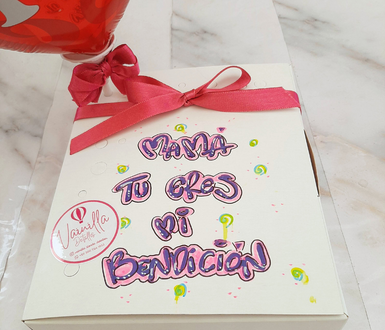 MAMA
TU ERES
MI
BENDICIÓN
Vainilla